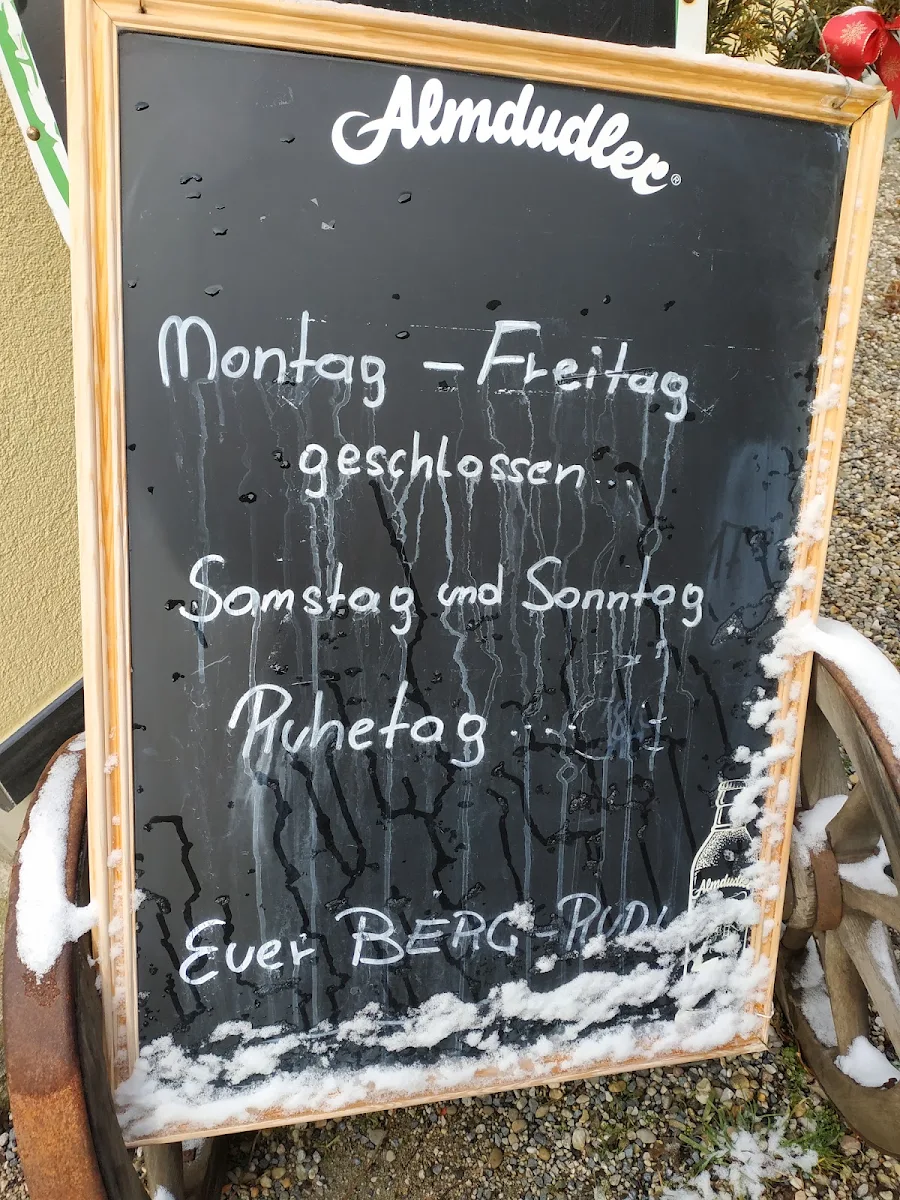 Almdudler®
Montag - Freitag
geschlossen...
Samstag und Sonntag
Ruhetag...
Euer BERG-RUDI
Almdudler